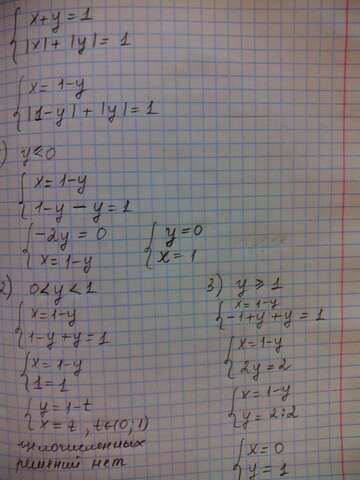 x+y=1
|x|+|y|=1
x=1-y
|1-y|+|y|=1
) y≤0
x=1-y
1-y-y=1
-2y=0
x=1-y
y=0
x=1
2) 0<y<1
x=1-y
1-y+y=1
x=1-y
1=1
y=1-t
x=t, t∈(0;1)
целочисленных
решений нет
3) y≥1
x=1-y
-1+y+y=1
x=1-y
2y=2
x=1-y
y=2:2
x=0
y=1